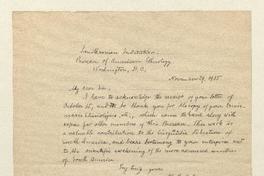 Smithsonian Institution,
Bureau of American Ethnology
Washington, D.C.
November 29, 1885
My dear Sir:
I have to acknowledge the receipt of your letter of
October 15, and to thank you for the copy of your
, which came to hand along with
copies for other members of this Bureau. This work is
a valuable contribution to the linguistic literature of
America, and bears testimony to your enterprise and
to the scientific awakening of the more advanced countries
of South America
Very truly yours